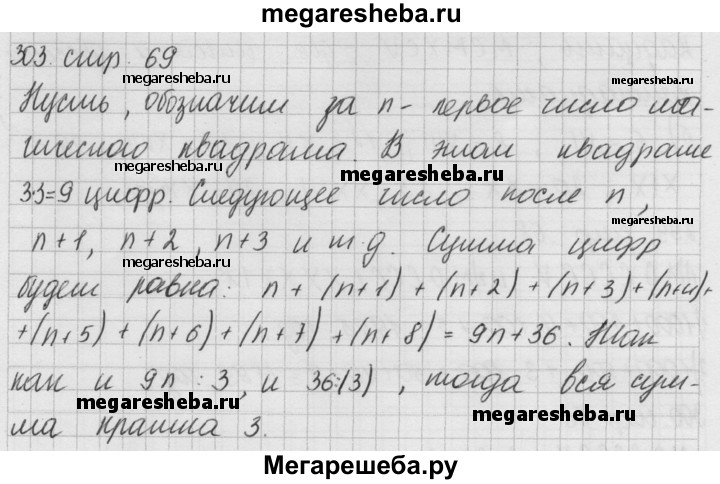 megaresheba.ru
303. стр. 69
megaresheba.ru megaresheba.ru
Пусть, обозначим за n - первое число ма-
гического квадрата. В этом квадрате
megaresheba.ru megaresheba.ru
3·3=9 цифр. Следующее число после n,
n+1, n+2, n+3 и т.д. Сумма цифр
megaresheba.ru megaresheba.ru
будет равна: n + (n+1) + (n+2) + (n+3) + (n+4) +
+ (n+5) + (n+6) + (n+7) + (n+8) = 9n+36. Так
как и 9n : 3, и 36:(3), тогда вся сум-
megaresheba.ru megaresheba.ru
ма кратна 3.
Мегарешеба.ру